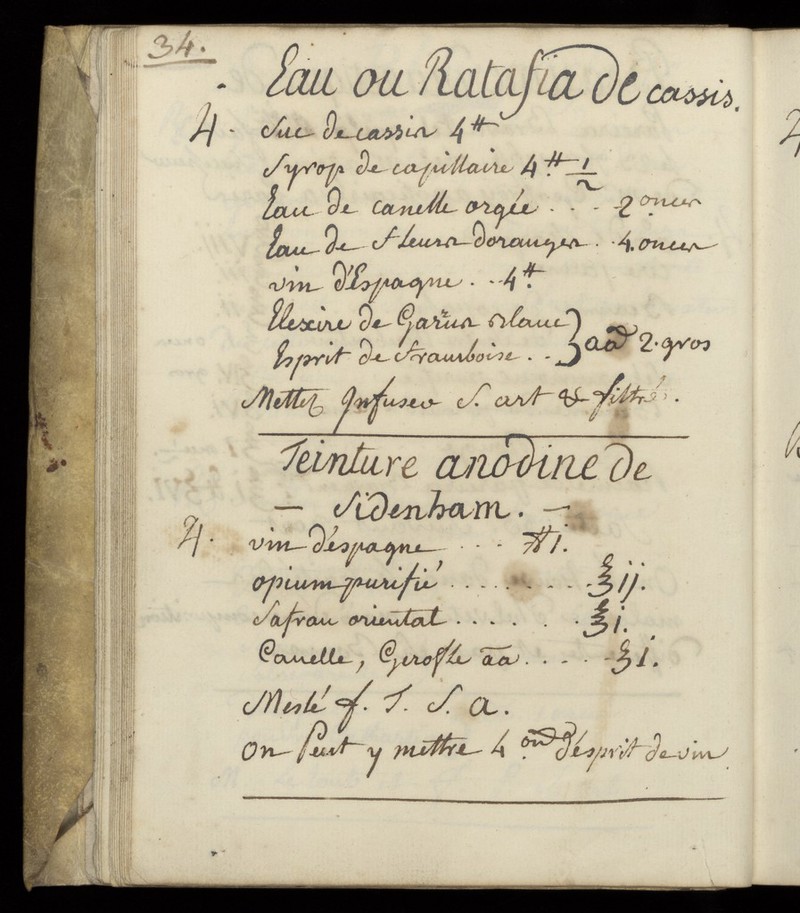 34.
Eau ou Ratafia De cassis.
♃. Suc de cassis 4 ℔
Syrop de capillaire 4 ℔ 1/2
Eau de canelle orgée . . . 2 onces
Eau de fleurs doranger . . 4. onces
vin d'Espagne . . . 4 ℔.
Elexire de Garus blanc } aã 2. gros
Esprit de framboise . . }
Mettez Infuser S. art & filtré.
Teinture anodine De
— Sidenham. —
♃. vin d'éspagne . . . ℔ i.
opium purifié . . . . . . . . ℥ ij.
Safran oriental . . . . . . ℥ i.
Canelle, Gerofle aã . . . . . ʒ i.
Meslé f. T. S. a.
on Peut y mettre 4 on d'ésprit de vin